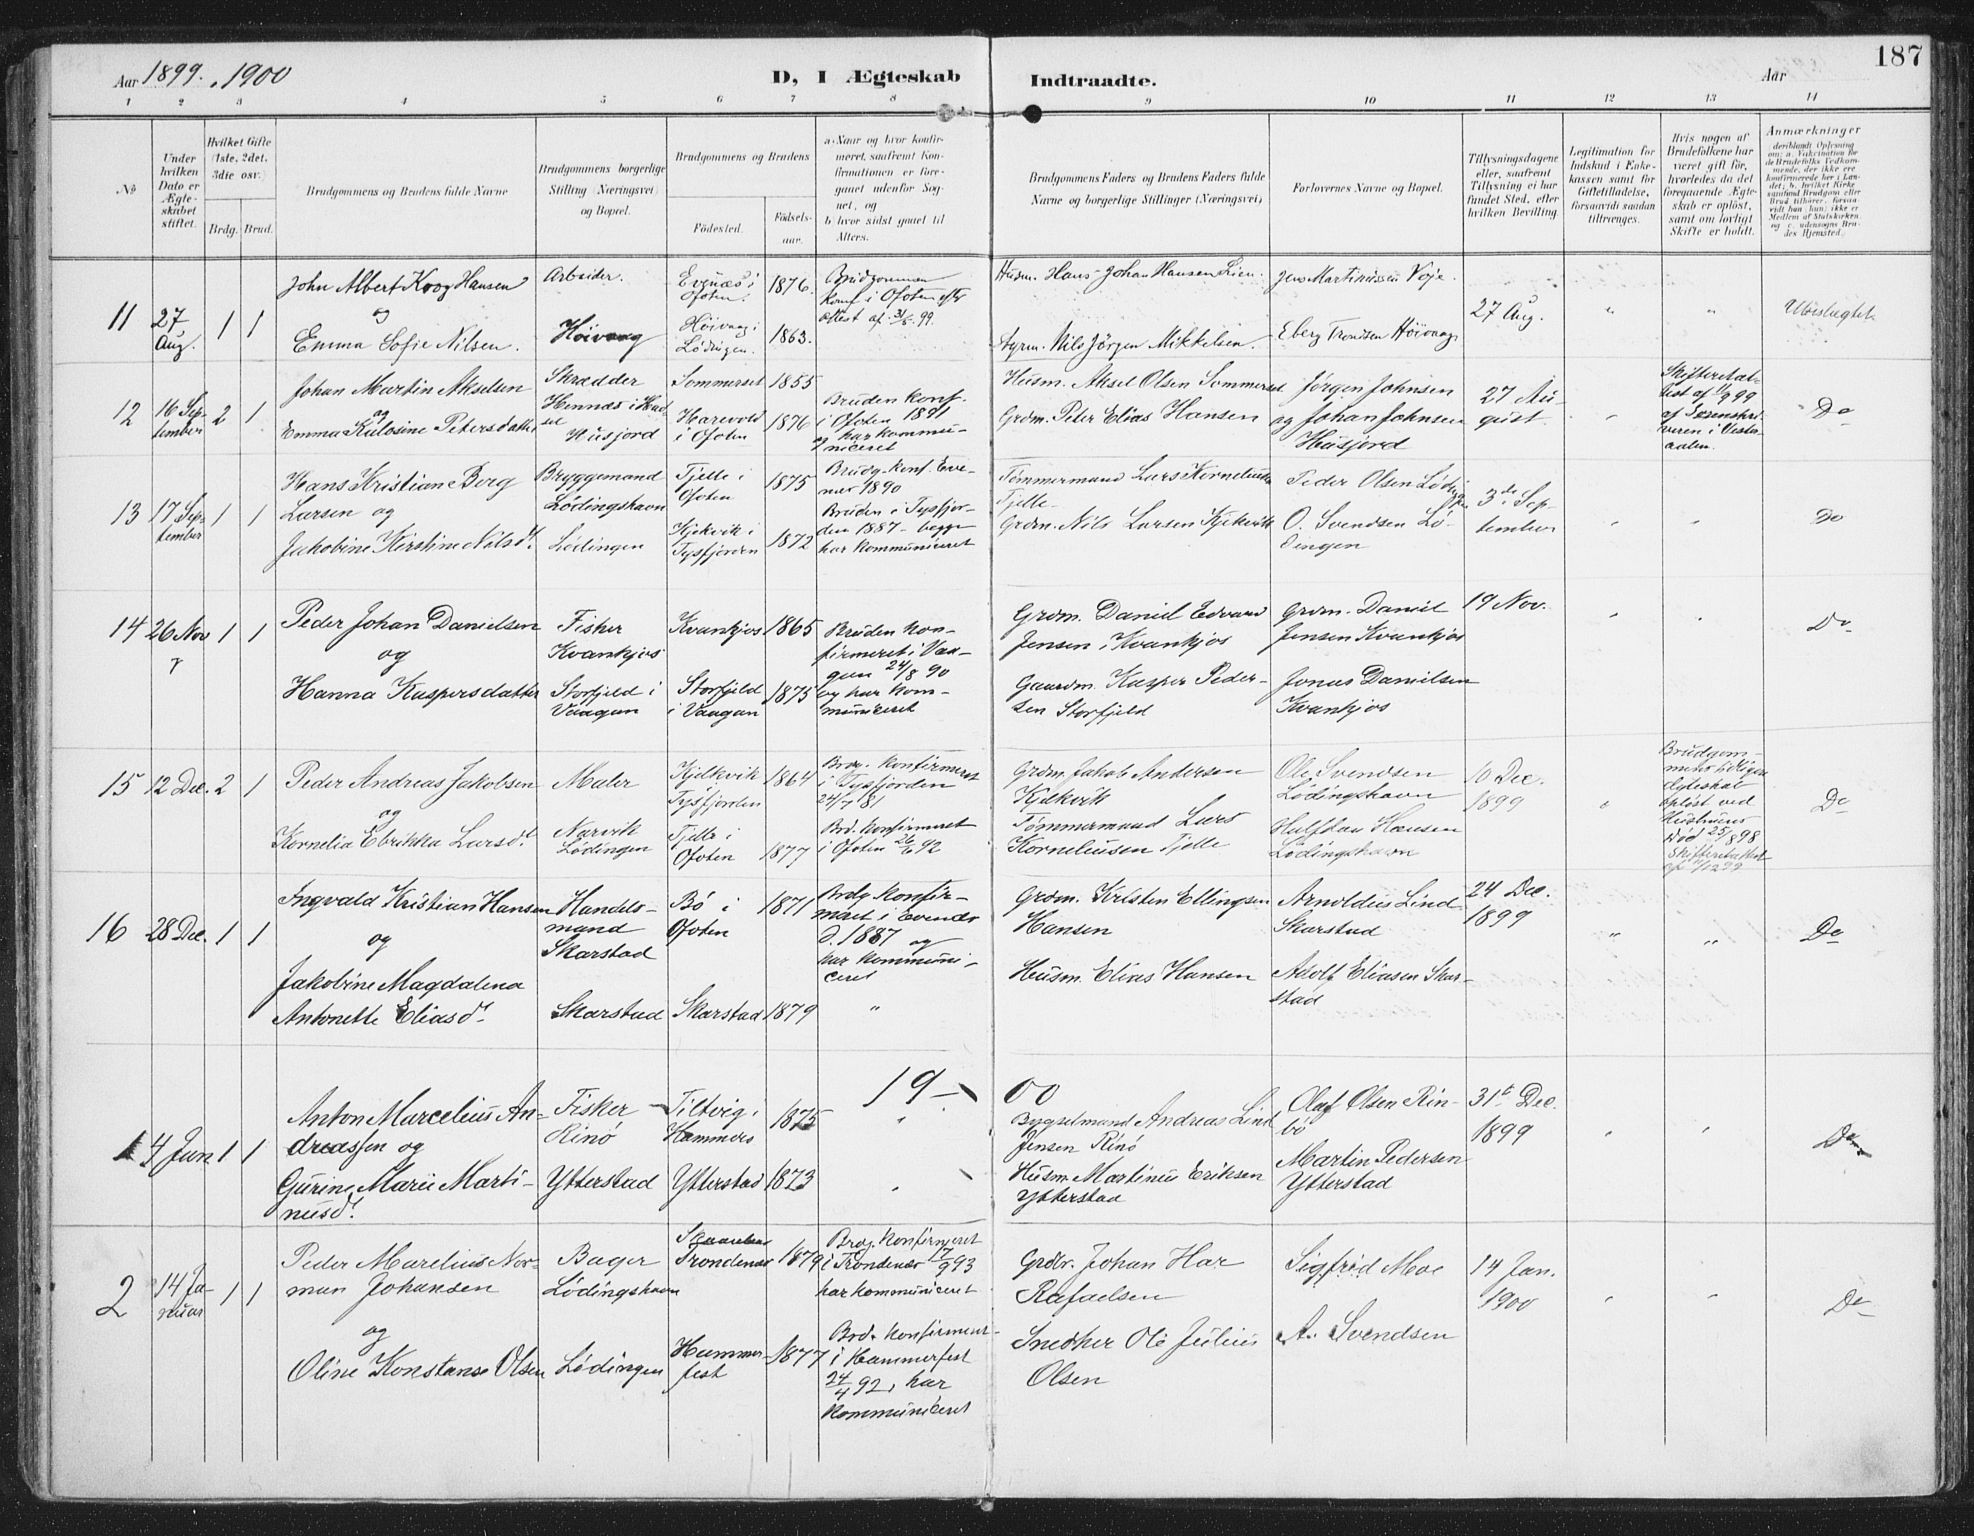 187
Aar 1899. 1900
D, I Ægteskab Indtraadte.
Aar
1 2 3 4 5 6 7 8 9 10 11 12 13 14
No
Under hvilken Dato er Ægteskabet stiftet.
Hvilket Gifte (1ste, 2det, 3die osv.)
Brdg. Brud.
Brudgommens og Brudens fulde Navne
Brudgommens borgerlige Stilling (Næringsvei) og Bopæl.
Brudgommens og Brudens
Fødested.
Fødselsaar.
a. Naar og hvor konfirmeret, saafremt Konfirmationen er foregaaet udenfor Sognet, og
b. hvor sidst gaaet til Alters.
Brudgommens Faders og Brudens Faders fulde Navne og borgerlige Stillinger (Næringsvei)
Forlovernes Navne og Bopæl.
Tillysningsdagene eller, saafremt Tillysning ei har fundet Sted, efter hvilken Bevilling
Legitimation for Indskud i Enkekassen samt for Giftetilladelse, forsaavidt saadan tiltrænges.
Hvis nogen af Brudefolkene har været gift før, hvorledes da det foregaaende Ægteskab er opløst, samt om lovligt Skifte er holdt.
Anmærkninger
11
27 Aug.
1 1
John Albert Krog Hansen
og
Emma Sofie Nilsen.
Arbeider.
Høivaag
Evenæs i Ofoten.
Høivaag i Lødingen.
1876.
1863.
Brudgommen
Konf. i Ofoten eft.
attest af 31/5 99.
Husm. Hans Johan Hansen Lien.
Gyrm. Nils Jörgen Mikkelsen.
Jens Martinussen Voje.
Eberg Trondsen Höivaag
27 Aug.
Ubeslægtet.
12
16 September
2 1
Johan Martin Akselsen
og
Emma Kulosine Petersdatter
Skrædder
Hennæs i Hadsel
Husjord
Sommerset
Harevold i Ofoten
1855
1876
Bruden konf.
i Ofoten 1891
og har kommuniceret
Husm. Aksel Olsen Sommerset
Grdm. Peter Elias Hansen
Jørgen Johnsen
og Johan Johnsen
Husjord
27 August.
Skifteretattest af 1/9 99
af Sorenskriveren i Vesteraalen.
Do
13
17 September
1 1
Hans Kristian Berg
Larsen og
Jakobine Kirstine Nilsdt.
Bryggemand
Lödingshavn
Lödingen
Tjelle i Ofoten
Kjekvik i Tysfjorden
1875
1872
Brudg. konf. Evenæs 1890
Bruden i Tysfjorden 1887 - begge
har kommuniceret
Tømmermand Lars Korneliussen
Tjelle
Grdm. Nils Larsen Kjekvik
Peder Olsen Lödingen
O. Svendsen Lödingen
3de September
Do
14
26 Nov
1 1
Peder Johan Danielsen
og
Hanna Kaspersdatter
Fisker
Kvankjos
Storfjeld i Vaagan
Kvankjos
Storfjeld i Vaagan
1865
1875
Bruden konfirmeret i Vaagan 24/8 90
og har kommuniceret
Grdm. Daniel Edvard
Jensen i Kvankjos
Gaardm. Kasper Pedersen Storfjeld
Grdm. Daniel
Jensen Kvankjos
Jonas Danielsen
Kvankjos
19 Nov.
Do
15
12 Dec.
2 1
Peder Andreas Jakobsen
og
Kornelia Ebrikka Larsdt.
Maler
Narvik
Lödingen
Kjelkvik
Tysfjorden
Tjelle i Ofoten
1864
1877
Brdg. konfirmeret
i Tysfjorden
24/7 81
Brd. konfirmeret
i Ofoten 26/6 92
Grdm. Jakob Andersen
Kjelkvik
Tömmermand Lars
Korneliusen Tjelle
Ole Svendsen
Lödingshavn
Halfdan Hansen
Lödingshavn
10 Dec.
1899
Brudgommens tidligere
Ægteskab
opløst ved
Hustruens
Død 25/ 898
Skifteretattest
Do
16
28 Dec.
1 1
Ingvald Kristian Hansen
og
Jakobine Magdalena
Antonette Eliasdt.
Handelsmand
Skarstad
Skarstad
Bö i Ofoten
Skarstad
1871
1879
Brdg konfirmeret i Evenæs
d. 1887 og
har kommuniceret
Grdm. Kristen Ellingsen
Hansen
Husm. Elias Hansen
Arnoldus Lind
Skarstad
Adolf Eliasen Skarstad
24 Dec.
1899
Do
19-00
1
4 Jan
1 1
Anton Marcelius Andreassen og
Gurine Marie Martinusdt.
Fisker
Rinö
Ytterstad
Tiltvig i Hammerö
Ytterstad
1875
1873
Bygselmand Andreas Lind
Jensen Rinö
Husm. Martinus Eriksen
Ytterstad
Olaf Olsen Rinbö
Martin Pedersen
Ytterstad
31te Dec.
1899
Do
2
14 Januar
1 1
Peder Marelius Norman Johansen
og
Oline Konstanse Olsen
Bager
Lödingshavn
Lödingen
Trondenæs
Hammerfest
1879
1877
Brdg. konfirmeret
i Trondenæs 17/9 93
har kommuniceret
Brd. konfirmeret
i Hammerfest
24/4 92, har
kommuniceret
Grdbr. Johan Har
Rafaelsen
Snedker Ole Julius
Olsen
Sigfrid Moe
A. Svendsen
14 Jan.
1900
Do